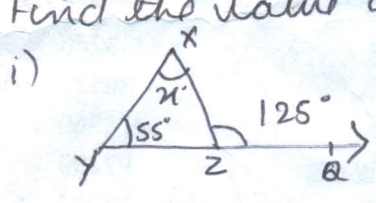 Find the value
i)
X
x°
55°
125°
Y
Z
Q